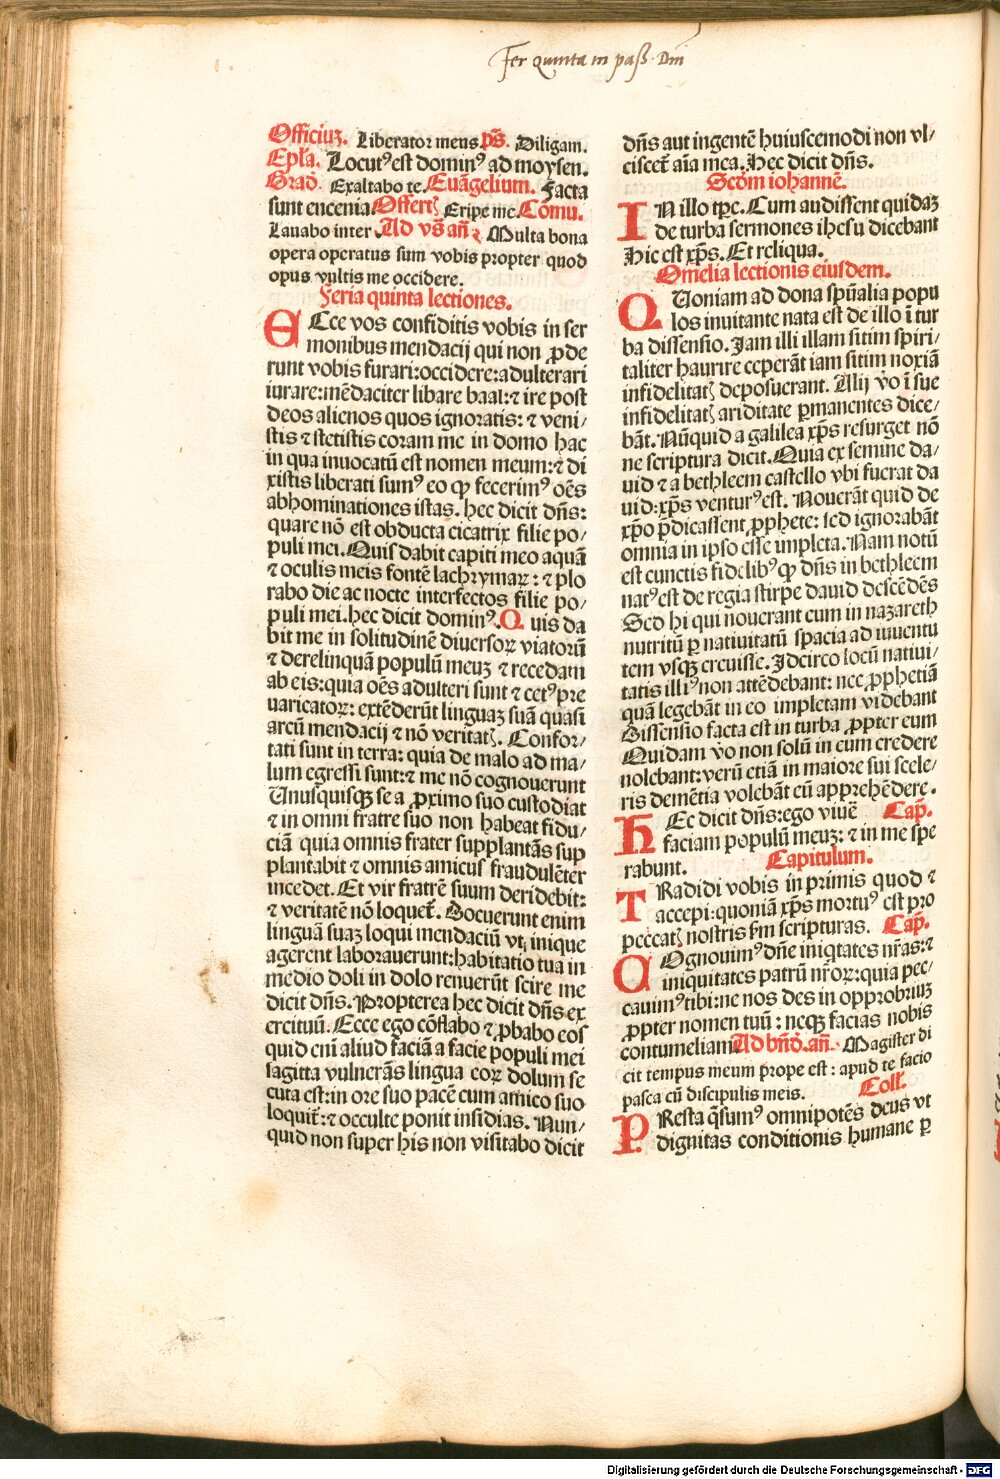 Fer quinta in paß. Dnī
Officiuꝫ. Liberator meus p̄s. Diligam.
Ep̄la. Locutꝰ est dominꝰ ad moysen.
Grad̄. Exaltabo te. Euāgelium. Facta
sunt encenia Offert̉ Eripe me. Cōmu.
Lauabo inter. Ad vs̄ añ. Multa bona
opera operatus sum vobis propter quod
opus vultis me occidere.
Feria quinta lectiones.
ECce vos confiditis vobis in ser
monibus mendacij qui non ꝓde
runt vobis furari: occidere: adulterari
iurare: mēdaciter libare baal: ⁊ ire post
deos alienos quos ignoratis: ⁊ veni/
stis ⁊ stetistis coram me in domo hac
in qua inuocatū est nomen meum: ⁊ di
xistis liberati sumꝰ eo ꝙ fecerimꝰ oēs
abhominationes istas. hec dicit dn̄s:
quare nō est obducta cicatrix filie po/
puli mei. Quis dabit capiti meo aquā
⁊ oculis meis fontē lachrymaꝝ: ⁊ plo
rabo die ac nocte interfectos filie po/
puli mei. hec dicit dominꝰ. Quis da
bit me in solitudinē diuersoꝝ viatorū
⁊ derelinquā populū meuꝫ ⁊ recedam
ab eis: quia oēs adulteri sunt ⁊ cetꝰ pre
uaricatoꝝ: extēderūt linguaꝫ suā quasi
arcū mendacij ⁊ nō veritatꝭ. Confor/
tati sunt in terra: quia de malo ad ma/
lum egressi sunt: ⁊ me nō cognouerunt
Unusquisqꝫ se a ꝓximo suo custodiat
⁊ in omni fratre suo non habeat fidu/
ciā quia omnis frater supplantās sup
plantabit ⁊ omnis amicus fraudulēter
incedet. Et vir fratrē suum deridebit:
⁊ veritatē nō loquet̄. Docuerunt enim
linguā suaꝫ loqui mendaciū vt inique
agerent laborauerunt: habitatio tua in
medio doli in dolo renuerūt scire me
dicit dn̄s. Propterea hec dicit dn̄s ex
ercituū. Ecce ego cōflabo ⁊ ꝓbabo eos
quid eni aliud faciā a facie populi mei
sagitta vulnerās lingua eoꝝ dolum se
cuta est: in ore suo pacē cum amico suo
loquit̄: ⁊ occulte ponit insidias. Nun/
quid non super his non visitabo dicit
dn̄s aut in gentē huiuscemodi non vl/
ciscet̄ aīa mea. Hec dicit dn̄s.
Scd̄m iohannē.
IN illo tꝑe. Cum audissent quidaꝫ
de turba sermones ihesu dicebant
Hic est xp̄s. Et reliqua.
Omelia lectionis eiusdem.
QUoniam ad dona spūalia popu
los inuitante nata est de illo ī tur
ba dissensio. Jam illi illam sitim spiri/
taliter haurire ceperāt iam sitim noxiā
infidelitatꝭ deposuerant. Alij v̓o ī sue
infidelitatꝭ ariditate ꝑmanentes dice/
bāt. Nūquid a galilea xp̄s resurget nō
ne scriptura dicit. Quia ex semine da/
uid ⁊ a bethleem castello vbi fuerat da
uid: xp̄s venturꝰ est. Nouerāt quid de
xp̄o p̄dicassent ꝓphete: sed ignorabāt
omnia in ipso esse impleta. Nam notū
est cunctis fidelibꝰ ꝙ dn̄s in bethleem
natꝰ est de regia stirpe dauid descēdēs
Sed hi qui nouerant cum in nazareth
nutritū ꝑ natiuitatū spacia ad iuuentu
tem vsqꝫ creuisse. Jdcirco locū natiui/
tatis illiꝰ non attēdebant: nec ꝓphetiā
quā legebāt in eo impletam videbant
Dissensio facta est in turba ꝓpter eum
Quidam v̓o non solū in eum credere
nolebant: verū etiā in maiore sui scele/
ris demētia volebāt eū apprehēdere.
HEc dicit dn̄s: ego viuē Cap̄.
faciam populū meuꝫ: ⁊ in me spe
rabunt. Capitulum.
TRadidi vobis in primis quod ⁊
accepi: quoniā xp̄s mortuꝰ est pro
peccatꝭ nostris scd̄m scripturas. Cap̄.
COgnouimꝰ dn̄e iniqtates nr̄as: ⁊
iniquitates patrū nr̄oꝝ: quia pec/
cauimꝰ tibi: ne nos des in opprobriuꝫ
ꝓpter nomen tuū: neqꝫ facias nobis
contumeliam Ad bn̄d̄. añ. Magister di
cit tempus meum prope est: apud te facio
pasca cū discipulis meis. Coll̄.
PResta q̄sumꝰ omnipotēs deus vt
dignitas conditionis humane ꝑ
Digitalisierung gefördert durch die Deutsche Forschungsgemeinschaft - DFG